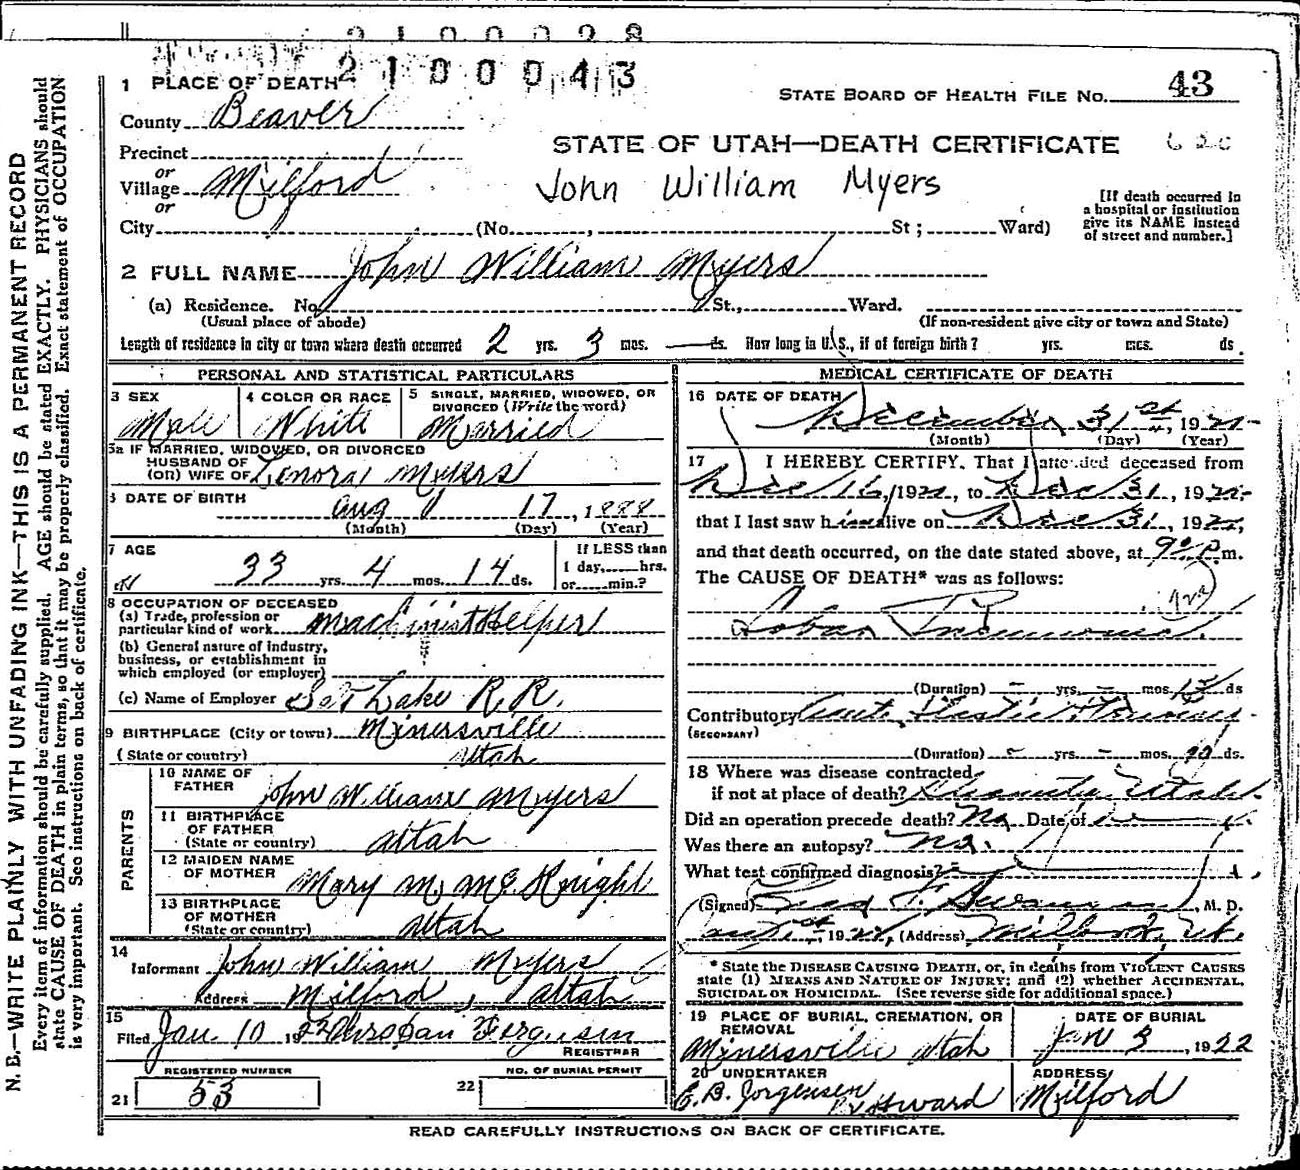 2100028
2100043
1 PLACE OF DEATH
STATE BOARD OF HEALTH FILE NO. 43
County Beaver
STATE OF UTAH—DEATH CERTIFICATE
Precinct
or
Village Milford
or
John William Myers
[If death occurred in
a hospital or institution
give its NAME instead
of street and number.]
City (No. , St ; Ward)
2 FULL NAME John William Myers
(a) Residence. No. St., Ward.
(Usual place of abode) (If non-resident give city or town and State)
Length of residence in city or town where death occurred 2 yrs. 3 mos. — ds. How long in U.S., if of foreign birth? yrs. mos. ds.
PERSONAL AND STATISTICAL PARTICULARS
3 SEX 4 COLOR OR RACE 5 SINGLE, MARRIED, WIDOWED, OR
DIVORCED (Write the word)
Male White Married
5a IF MARRIED, WIDOWED, OR DIVORCED
HUSBAND OF
(OR) WIFE OF Lenora Myers
6 DATE OF BIRTH
Aug 17, 1888
(Month) (Day) (Year)
7 AGE If LESS than
33 yrs. 4 mos. 14 ds. 1 day, hrs.
or min.?
8 OCCUPATION OF DECEASED
(a) Trade, profession or
particular kind of work Machinist Helper
(b) General nature of industry,
business, or establishment in
which employed (or employer)
(c) Name of Employer Salt Lake R.R.
9 BIRTHPLACE (City or town) Minersville
(State or country) Utah
PARENTS
10 NAME OF
FATHER John William Myers
11 BIRTHPLACE
OF FATHER
(State or country) Utah
12 MAIDEN NAME
OF MOTHER Mary M. McKnight
13 BIRTHPLACE
OF MOTHER
(State or country) Utah
14
Informant John William Myers
Address Milford, Utah
15
Filed Jan. 10 1922 Ferguson
REGISTRAR
REGISTERED NUMBER NO. OF BURIAL PERMIT
21 53 22
MEDICAL CERTIFICATE OF DEATH
16 DATE OF DEATH
December 31st, 1921
(Month) (Day) (Year)
17 I HEREBY CERTIFY, That I attended deceased from
Dec 16, 1921, to Dec 31, 1921
that I last saw him alive on Dec 31, 1921,
and that death occurred, on the date stated above, at 9 P.m.
The CAUSE OF DEATH* was as follows:
Lobar Pneumonia
(Duration) – yrs. – mos. 15 ds
Contributory Acute Plastic
(SECONDARY)
(Duration) – yrs. – mos. 10 ds.
18 Where was disease contracted
if not at place of death? Utah
Did an operation precede death? No Date of
Was there an autopsy? No.
What test confirmed diagnosis?
(Signed) M. D.
1922, (Address) Milford, Ut.
* State the DISEASE CAUSING DEATH, or, in deaths from VIOLENT CAUSES
state (1) MEANS AND NATURE OF INJURY; and (2) whether ACCIDENTAL,
SUICIDAL OR HOMICIDAL. (See reverse side for additional space.)
19 PLACE OF BURIAL, CREMATION, OR
REMOVAL DATE OF BURIAL
Minersville Utah Jan 3, 1922
20 UNDERTAKER ADDRESS
E. B. Jorgensen Milford
READ CAREFULLY INSTRUCTIONS ON BACK OF CERTIFICATE.
N. B.—WRITE PLAINLY WITH UNFADING INK—THIS IS A PERMANENT RECORD
Every item of information should be carefully supplied. AGE should be stated EXACTLY. PHYSICIANS should
state CAUSE OF DEATH in plain terms, so that it may be properly classified. Exact statement of OCCUPATION
is very important. See instructions on back of certificate.